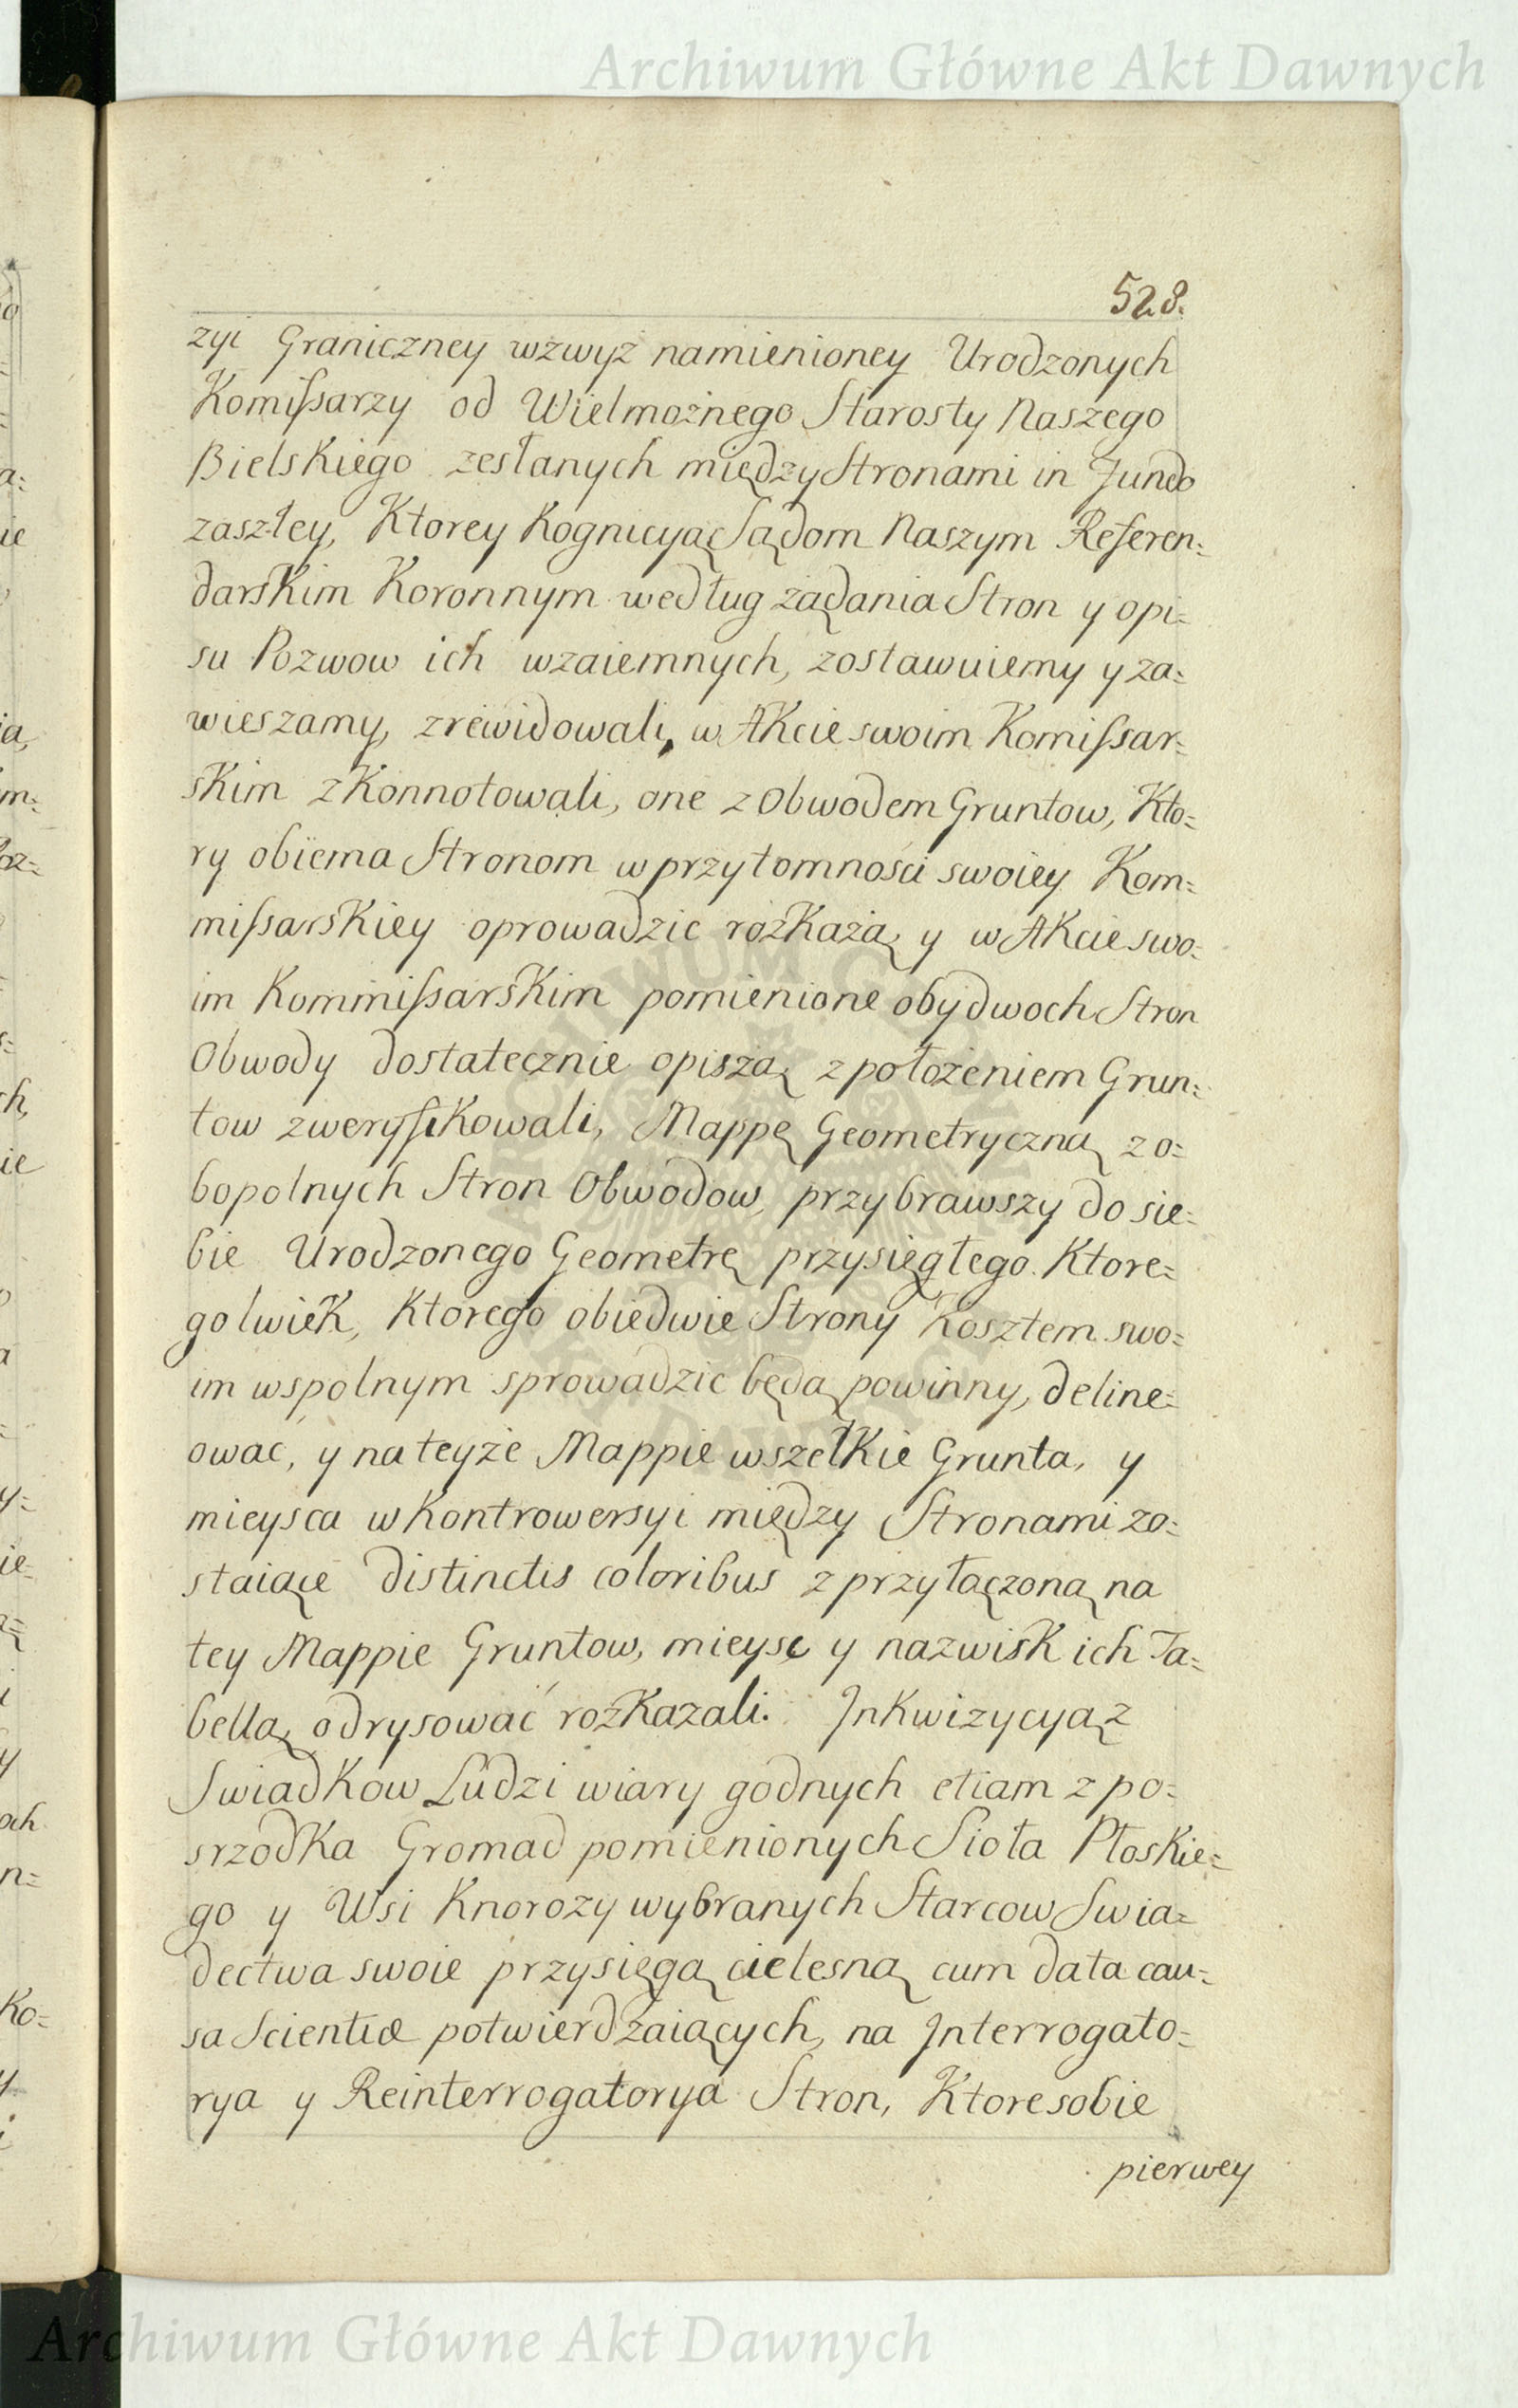 Archiwum Główne Akt Dawnych
528.
zyi Graniczney wzwyż namienioney Urodzonych
Komißarzy od Wielmożnego Starosty Naszego
Bielskiego zesłanych między Stronami in Fundo
zaszłey, Ktorey Kognicyą Sądom Naszym Referen=
darskim Koronnym według żądania Stron y opi=
su Pozwow ich wzaiemnych, zostawuiemy y za=
wieszamy, zrewidowali, w Akcie swoim Komißar=
skim zkonnotowali, one z Obwodem Gruntow, Kto=
ry obiema Stronom w przytomności swoiey Kom=
mißarskiey oprowadzic rozkażą y w Akcie swo=
im Kommißarskim pomienione obydwoch Stron
Obwody dostatecznie opiszą z położeniem Grun=
tow zweryfikowali, Mappę Geometryczną z o=
bopolnych Stron Obwodow, przybrawszy do sie=
bie Urodzonego Geometrę przysięgłego Ktore=
golwiek, Ktorego obiedwie Strony Kosztem swo=
im wspolnym sprowadzic będą powinny, deline=
owac, y na teyże Mappie wszelkie Grunta, y
mieysca w Kontrowersyi między Stronami zo=
staiące distinctis coloribus z przyłączoną na
tey Mappie Gruntow, mieysc y nazwisk ich Ta=
bellą odrysować rozkazali. Jnkwizycyą z
Swiadkow Ludzi wiary godnych etiam z po=
srzodka Gromad pomienionych Sioła Płoskie=
go y Wsi Knorozy wybranych Starcow Swia=
dectwa swoie przysięgą cielesną cum data cau=
sa Scientiæ potwierdzaiących, na Jnterrogato=
rya y Reinterrogatorya Stron, Ktore sobie
pierwey
Archiwum Główne Akt Dawnych